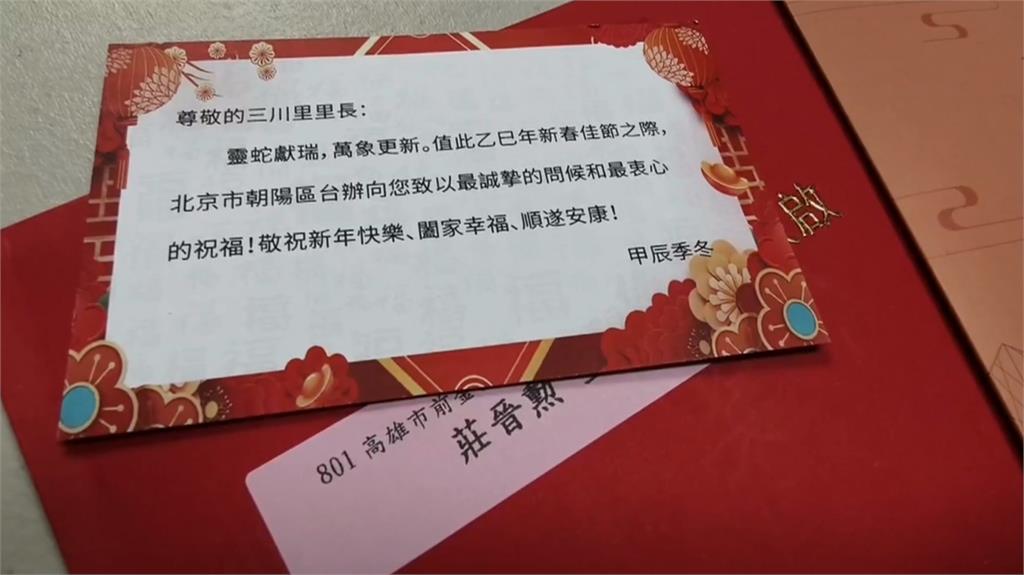 尊敬的三川里里長：
靈蛇獻瑞，萬象更新。值此乙巳年新春佳節之際，
北京市朝陽區台辦向您致以最誠摯的問候和最衷心
的祝福！敬祝新年快樂、闔家幸福、順遂安康！
甲辰季冬
啟
801 高雄市前金
莊晉勲